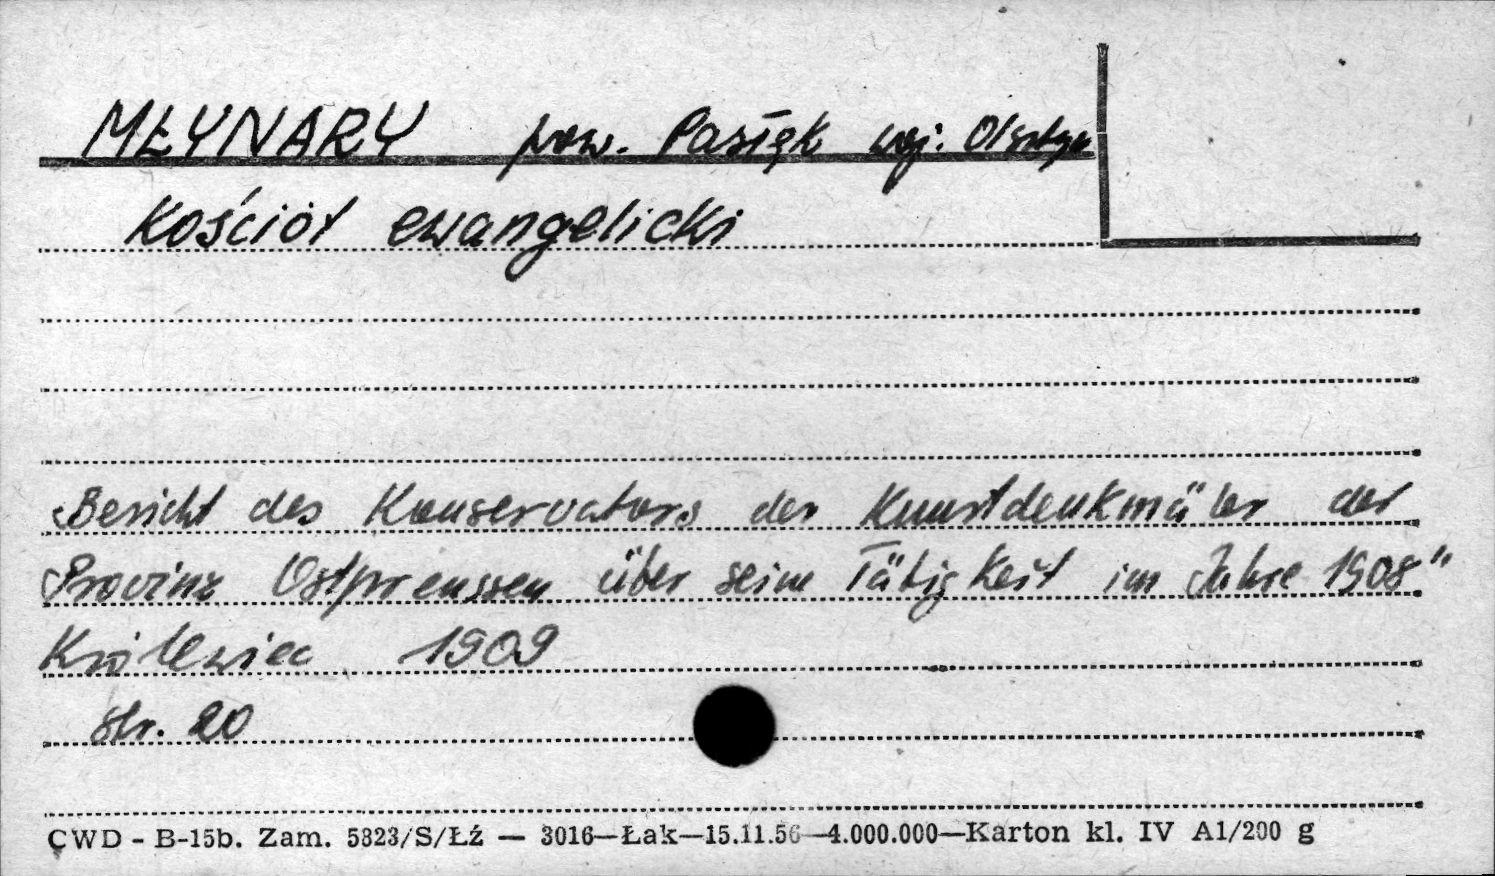 MŁYNARY pow. Pasłęk woj. Olsztyn
Kościół ewangelicki
"Bericht des Konservators der Kunstdenkmäler der
Provinz Ostpreussen über seine Tätigkeit im Jahre 1908"
Królewiec 1909
str. 20
CWD - B-15b. Zam. 5823/S/Łź — 3016—Łak—15.11.56—4.000.000—Karton kl. IV A1/200 g